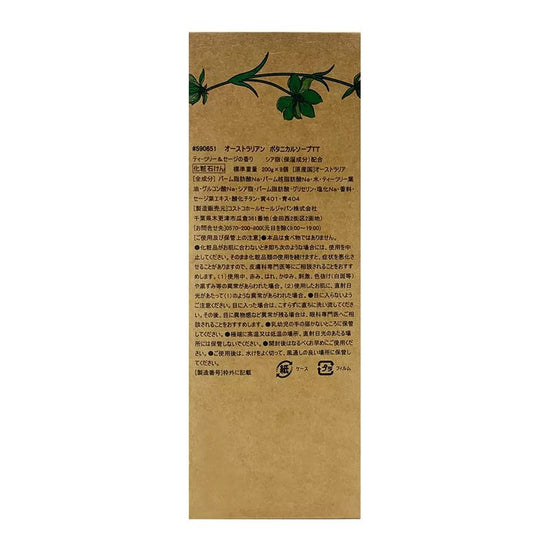 #590651　オーストラリアン　ボタニカルソープTT
ティーツリー&セージの香り　シア脂(保湿成分)配合
化粧石けん　標準重量　200g×8個　[原産国]オーストラリア
[全成分]　パーム脂肪酸Na・パーム核脂肪酸Na・水・ティーツリー葉
油・グルコン酸Na・シア脂・パーム脂肪酸・グリセリン・塩化Na・香料・
セージ葉エキス・酸化チタン・黄401・青404
[製造販売元]コストコホールセールジャパン株式会社
千葉県木更津市瓜倉361番地(金田西2街区2画地)
[お問合せ先]0570-200-800(元日を除く9:00～19:00)
[ご使用及び保管上の注意]●本品は食べ物ではありません。
●化粧品がお肌に合わないとき即ち次のような場合には、使用を中
止してください。そのまま化粧品類の使用を続けますと、症状を悪化さ
せることがありますので、皮膚科専門医等にご相談されることをおすす
めします。(1)使用中、赤み、はれ、かゆみ、刺激、色抜け(白斑等)
や黒ずみ等の異常があらわれた場合。(2)使用したお肌に、直射日
光があたって(1)のような異常があらわれた場合。●目に入らないよう
ご注意ください。目に入った場合は、こすらずに直ちに洗い流してくださ
い。その後、目に異物感など異常が残る場合は、眼科専門医へご相
談されることをおすすめします。●乳幼児の手の届かないところに保管
してください。●極端に高温又は低温の場所、直射日光のあたる場
所には保管しないでください。●開封後はなるべくお早めにご使用くださ
い。●ご使用後は、水けをよく切って、風通しの良い場所に保管し
てください。
[製造番号]枠外に記載
紙　ケース　プラ　フィルム